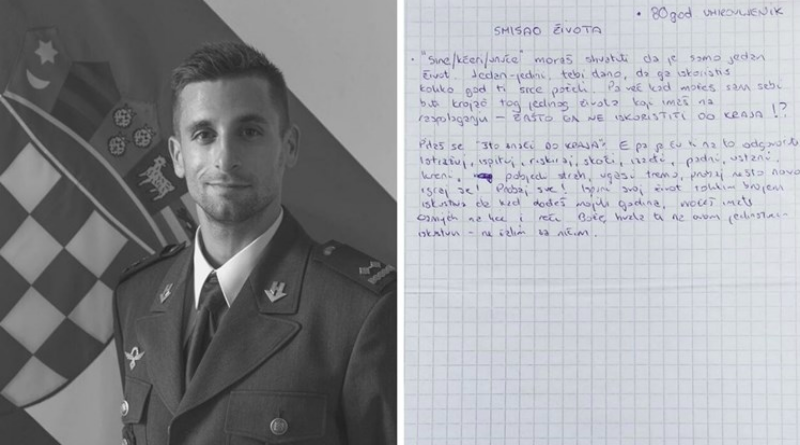 • 80 god UMIROVLJENIK
SMISAO ŽIVOTA
• "Sine/kćeri/unuče" moraš shvatiti da je samo jedan
život. Jedan-jedini, tebi dano, da ga iskoristiš
koliko god ti srce poželi. Pa već kad možeš sam sebi
biti krojač tog jednog života koji imaš na
raspolaganju - ZAŠTO GA NE ISKORISTITI DO KRAJA!?
Pitaš se "što znači DO KRAJA"? E pa ja ću ti na to odgovoriti
Istražuj, ispituj, riskiraj, skoči, izleti, padni, ustani,
kreni, pobjedi strah, ugasi tremu, probaj nešto novo
igraj se! Probaj sve! Ispuni svoj život tolikim brojem
iskustva da kad dođeš mojih godina, možeš imati
osmijeh na licu i reći Bože, hvala ti na ovom
iskustvu - ne žalim za ničim.